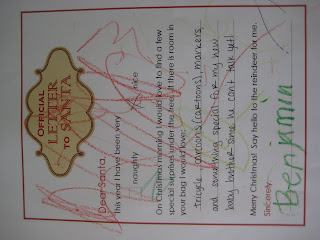 OFFICIAL
LETTER
TO SANTA
Dear Santa,
This year I have been very
naughty nice
On Christmas morning I would love to find a few
special surprises under the tree. If there is room in
your bag I would love:
tricycle, cartoons (cartoons), markers,
and something special for my new
baby brother since he can't talk yet!
Merry Christmas! Say hello to the reindeer for me.
Sincerely,
Benjamin